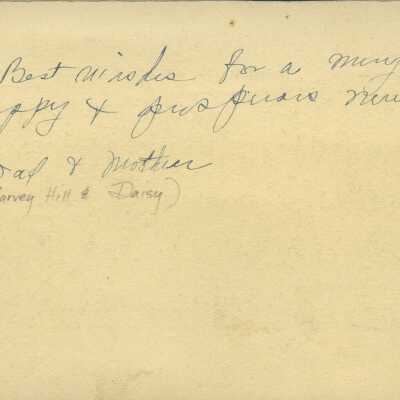 Best Wishes for a
ppy & prosperous
ad & Mother
arvey Hill & Daisy)